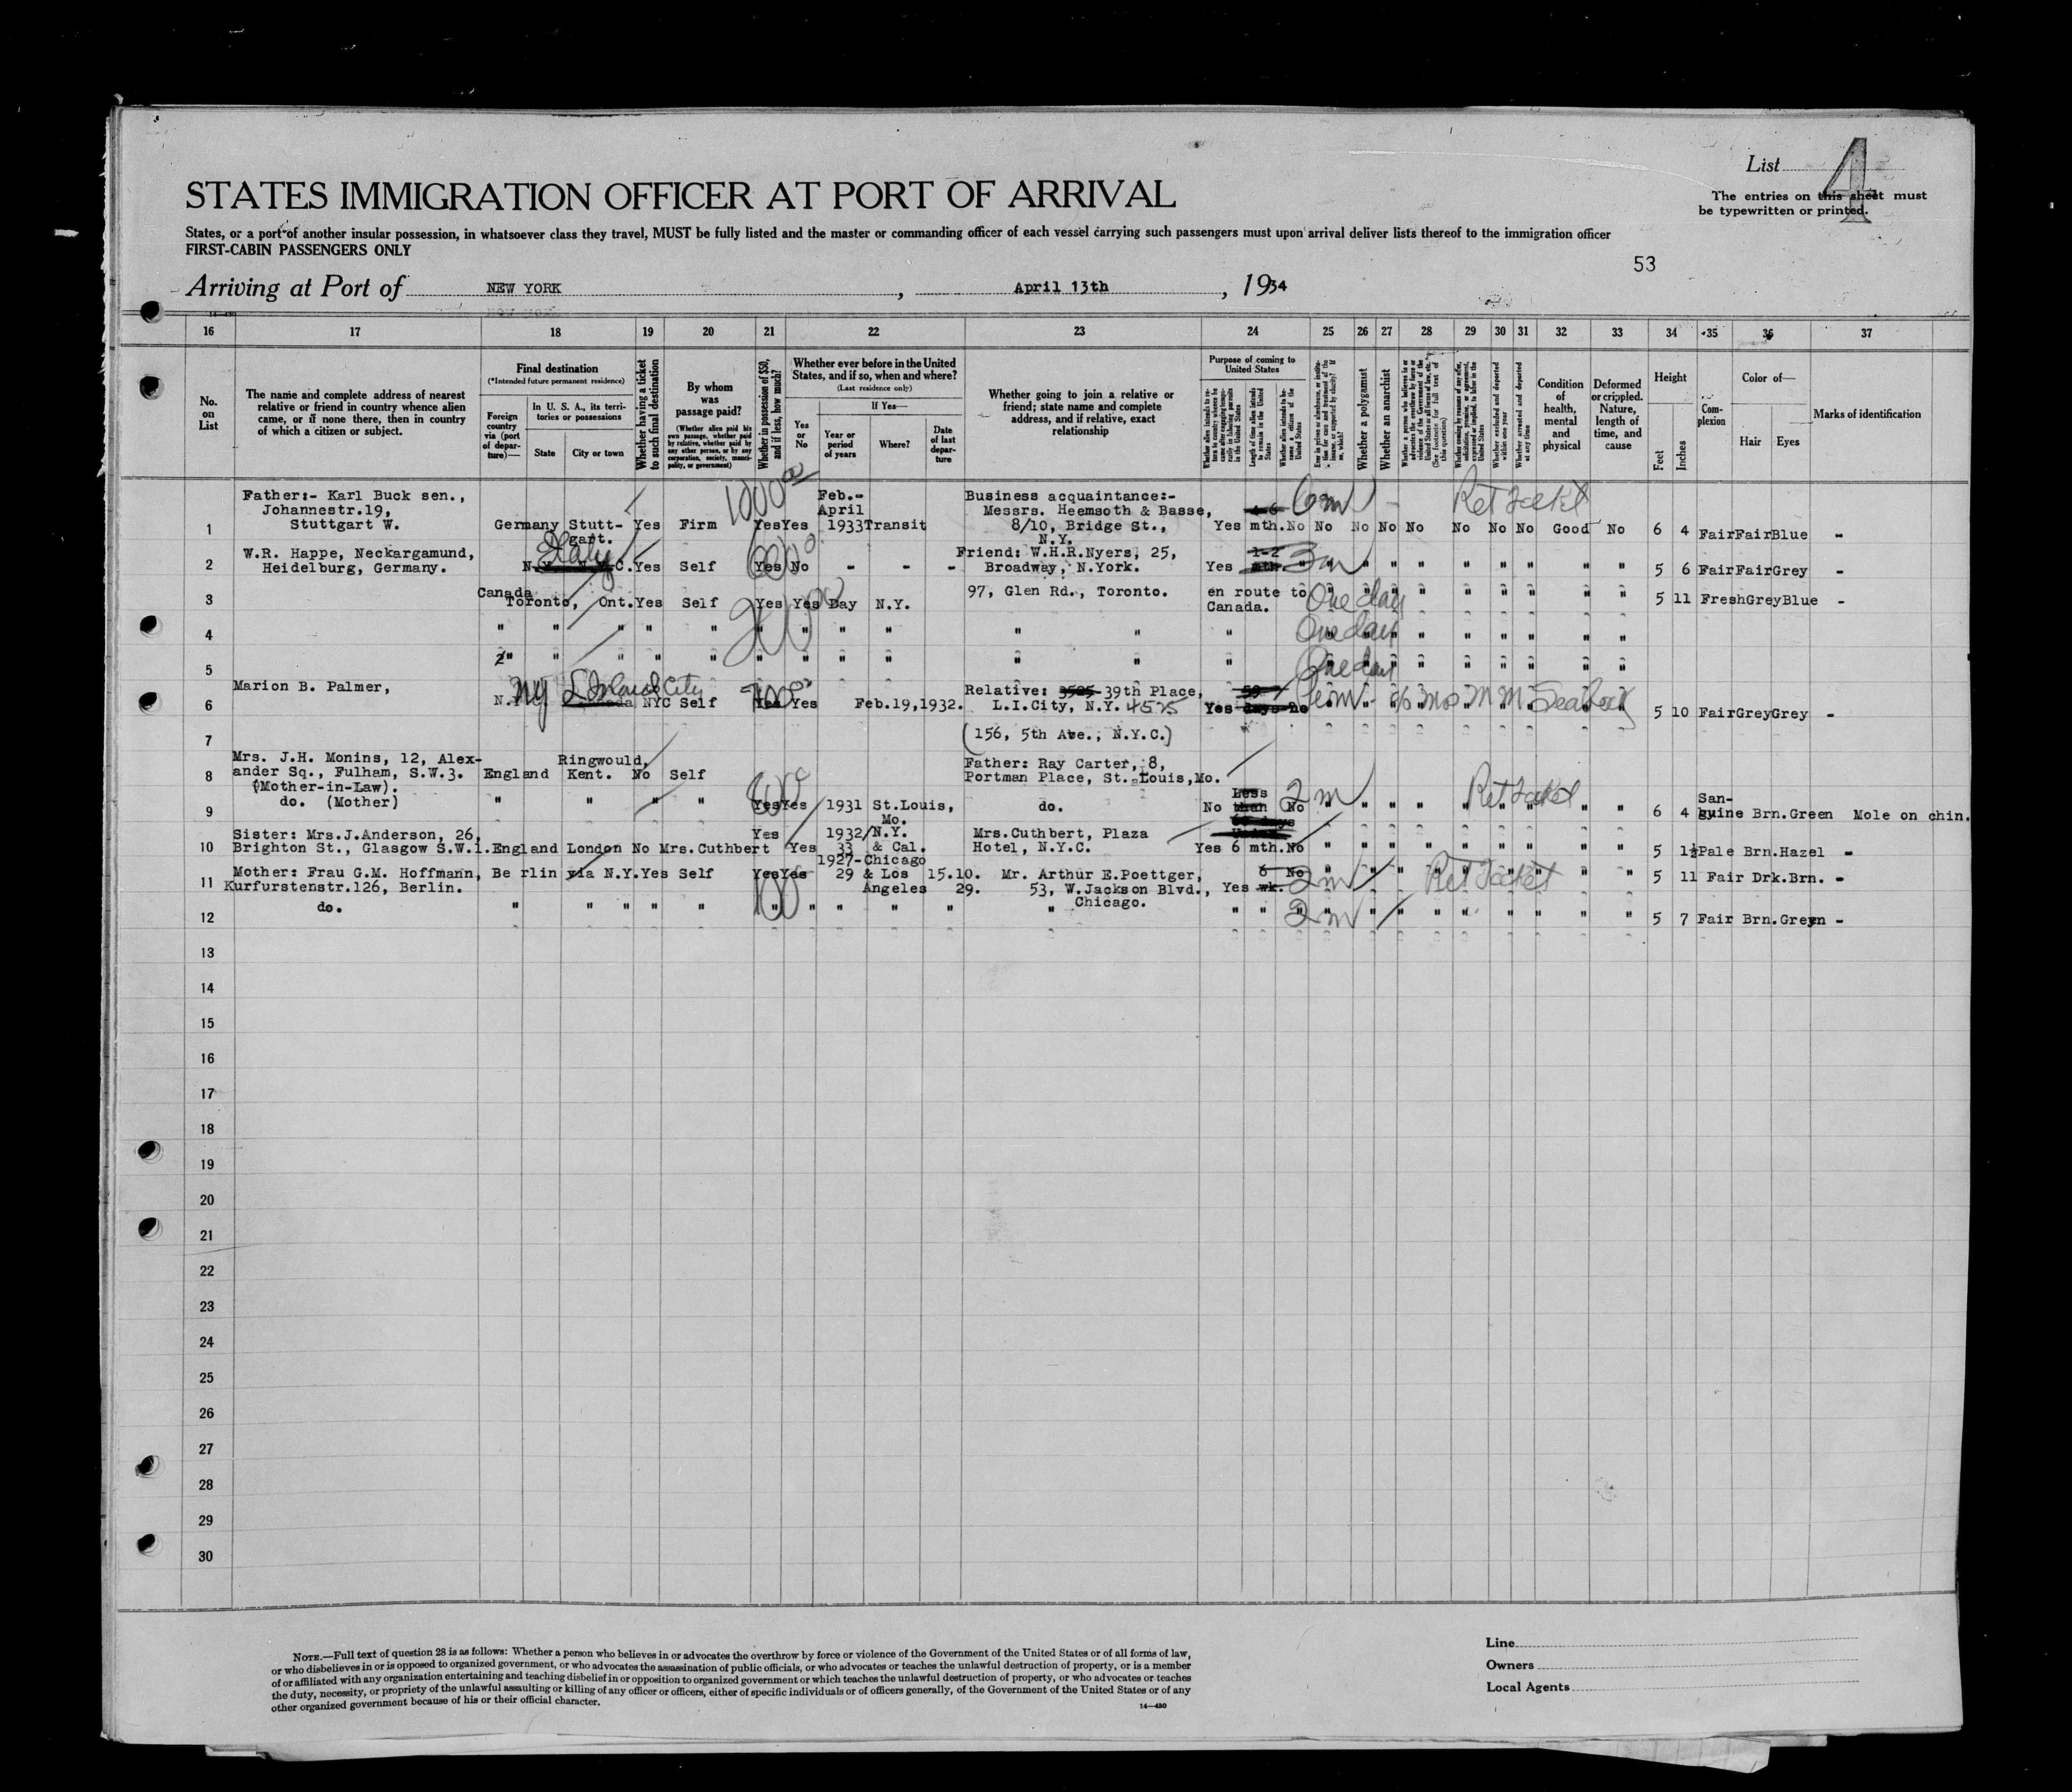 List 4
STATES IMMIGRATION OFFICER AT PORT OF ARRIVAL
The entries on this sheet must
be typewritten or printed.
States, or a port of another insular possession, in whatsoever class they travel, MUST be fully listed and the master or commanding officer of each vessel carrying such passengers must upon arrival deliver lists thereof to the immigration officer
FIRST-CABIN PASSENGERS ONLY
53
Arriving at Port of NEW YORK, April 13th, 1934
16 17 18 19 20 21 22 23 24 25 26 27 28 29 30 31 32 33 34 35 36 37
No. on List
The name and complete address of nearest
relative or friend in country whence alien
came, or if none there, then in country
of which a citizen or subject.
Final destination
(*Intended future permanent residence)
Foreign country via (port of departure)—
In U. S. A., its territories or possessions
State
City or town
Whether having a ticket to such final destination
By whom was passage paid?
(Whether alien paid his own passage, whether paid by relative, whether paid by any other person, or by any corporation, society, municipality, or government)
Whether in possession of $50, and if less, how much?
Whether ever before in the United
States, and if so, when and where?
(Last residence only)
Yes or No
If Yes—
Year or period of years
Where?
Date of last departure
Whether going to join a relative or
friend; state name and complete
address, and if relative, exact
relationship
Purpose of coming to United States
Length of time alien intends to remain in the United States
Whether alien intends to become a citizen of the United States
Whether a polygamist
Whether an anarchist
Whether excluded and deported within one year
Whether arrested and deported at any time
Condition of health, mental and physical
Deformed or crippled. Nature, length of time, and cause
Height
Feet
Inches
Complexion
Color of—
Hair
Eyes
Marks of identification
1 Father:- Karl Buck sen.,
Johannestr.19,
Stuttgart W.
Germany Stuttgart. Yes Firm 1000 00 Yes Yes Feb.- April 1933 Transit
Business acquaintance:-
Messrs. Heemsoth & Basse,
8/10, Bridge St.,
N.Y.
Yes mth. No 6m No No No No No No No Good No 6 4 Fair Fair Blue -
Ret Ticket
2 W.R. Happe, Neckargamund,
Heidelburg, Germany.
Italy C. Yes Self Yes No - - -
Friend: W.H.R.Nyers, 25,
Broadway, N.York.
Yes 1-2 mth 3m " " " " " " " " 5 6 Fair Fair Grey -
3 Canada
Toronto, Ont. Yes Self Yes Yes Day N.Y.
97, Glen Rd., Toronto.
en route to
Canada.
One day " " " " " " 5 11 Fresh Grey Blue -
4 " " " " " " " " " " " " One day " " " " " "
5 " " " " " " " " " " " " One day " " " " " "
6 Marion B. Palmer,
N.Y. NY L Island City NYC Self Yes Yes Feb.19,1932.
Relative: 3525 39th Place,
L.I.City, N.Y. 4525
Yes days no
5 10 Fair Grey Grey -
7 (156, 5th Ave., N.Y.C.)
8 Mrs. J.H. Monins, 12, Alex-
ander Sq., Fulham, S.W.3.
(Mother-in-Law).
England Ringwould, Kent. No Self
Father: Ray Carter, 8,
Portman Place, St. Louis, Mo.
9 do. (Mother)
" " " " 800 Yes Yes 1931 St.Louis, Mo.
do.
No Less than No 2m " " " " " " " " 6 4 San-
guine Brn. Green Mole on chin.
Ret Ticket
10 Sister: Mrs.J.Anderson, 26,
Brighton St., Glasgow S.W.1.
England London No Mrs.Cuthbert Yes Yes 1932/33 N.Y. & Cal.
Mrs.Cuthbert, Plaza
Hotel, N.Y.C.
Yes 6 mth. No " " " " " " " " 5 1½ Pale Brn. Hazel -
11 Mother: Frau G.M. Hoffmann,
Kurfurstenstr.126, Berlin.
Berlin via N.Y. Yes Self Yes Yes 1927-29 Chicago & Los Angeles 15.10.29.
Mr. Arthur E.Poettger,
53, W.Jackson Blvd.,
Chicago.
Yes 6 wk. No 2m " " " " " " 5 11 Fair Drk. Brn. -
Ret Ticket
12 do.
" " " " " 100 " " " " " " " " 2m " " " " " " " 5 7 Fair Brn. Green -
13
14
15
16
17
18
19
20
21
22
23
24
25
26
27
28
29
30
NOTE.—Full text of question 28 is as follows: Whether a person who believes in or advocates the overthrow by force or violence of the Government of the United States or of all forms of law,
or who disbelieves in or is opposed to organized government, or who advocates the assassination of public officials, or who advocates or teaches the unlawful destruction of property, or is a member
of or affiliated with any organization entertaining and teaching disbelief in or opposition to organized government or which teaches the unlawful destruction of property, or who advocates or teaches
the duty, necessity, or propriety of the unlawful assaulting or killing of any officer or officers, either of specific individuals or of officers generally, of the Government of the United States or of any
other organized government because of his or their official character.
14—430
Line
Owners
Local Agents